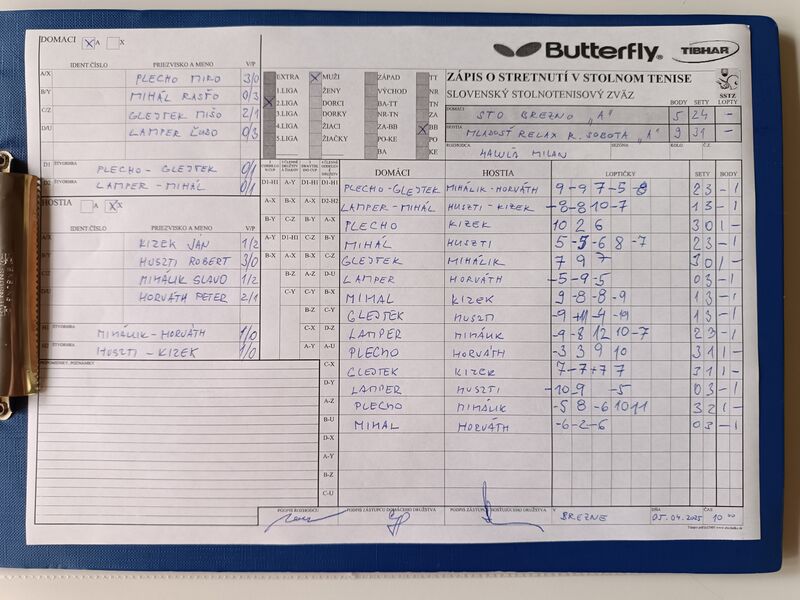 DOMÁCI X A X
IDENT.ČÍSLO PRIEZVISKO A MENO V/P
A/X PLECHO MIRO 3/0
B/Y MIHÁL RASŤO 0/3
C/Z GLEJTEK MIŠO 2/1
D/U LAMPER ĽUBO 0/3
D1 ŠTVORHRA PLECHO - GLEJTEK 0/1
D2 ŠTVORHRA LAMPER - MIHÁL 0/1
HOSTIA A X
IDENT.ČÍSLO PRIEZVISKO A MENO V/P
KIZEK JÁN 1/2
HUSZTI RÓBERT 3/0
MIHÁLIK SLAVO 1/2
HORVÁTH PETER 2/1
H1 ŠTVORHRA MIHÁLIK - HORVÁTH 1/0
H2 ŠTVORHRA HUSZTI - KIZEK 1/0
PRIPOMIENKY, POZNÁMKY
EXTRA X MUŽI ZÁPAD TT
1.LIGA ŽENY VÝCHOD NR
X 2.LIGA DORCI BA-TT TN
3.LIGA DORKY NR-TN ZA
4.LIGA ŽIACI ZA-BB X BB
5.LIGA ŽIAČKY PO-KE PO
BA KE
Butterfly TIBHAR
ZÁPIS O STRETNUTÍ V STOLNOM TENISE
SLOVENSKÝ STOLNOTENISOVÝ ZVÄZ SSTZ
BODY SETY LOPTY
DOMÁCI STO BREZNO "A" 5 24 -
HOSTIA MLADOSŤ RELAX R. SOBOTA "A" 9 31 -
ROZHODCA MILAN SEZÓNA KOLO Č.Z.
DOMÁCI HOSTIA LOPTIČKY SETY BODY
D1-H1 A-Y D1-H1 D1-H1 PLECHO-GLEJTEK MIHÁLIK-HORVÁTH 9 -9 7 -5 -8 2 3 - 1
A-X B-X A-X D2-H2 LAMPER-MIHÁL HUSZTI-KIZEK -8 -8 10 -7 1 3 - 1
B-Y C-Z B-Y A-X PLECHO KIZEK 10 2 6 3 0 1 -
A-Y D1-H1 C-Z B-Y MIHÁL HUSZTI 5 -5 -6 8 -7 2 3 - 1
B-X A-X B-X C-Z GLEJTEK MIHÁLIK 7 9 7 3 0 1 -
B-Z A-Z D-U LAMPER HORVÁTH -5 -9 -5 0 3 - 1
C-Y C-Y B-X MIHÁL KIZEK 9 -8 -8 -9 1 3 - 1
B-Z C-Y GLEJTEK HUSZTI 1 3 - 1
C-X D-Z LAMPER MIHÁLIK -9 -8 12 10 -7 2 3 - 1
A-Y A-U PLECHO HORVÁTH -3 3 9 10 3 1 1 -
C-X GLEJTEK KIZEK 7 -7 +7 7 3 1 1 -
D-Y LAMPER HUSZTI -10 -9 -5 0 3 - 1
A-Z PLECHO MIHÁLIK -5 8 -6 10 11 3 2 1 -
B-U MIHÁL HORVÁTH -6 -2 -6 0 3 - 1
A-Y
B-Z
C-U
PODPIS ROZHODCU PODPIS ZÁSTUPCU DOMÁCEHO DRUŽSTVA PODPIS ZÁSTUPCU HOSŤUJÚCEHO DRUŽSTVA V BREZNE DŇA 05.04.2025 ČAS 10 00